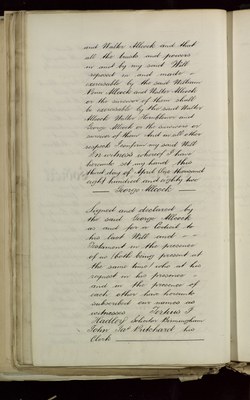 and Walter Allcock and that
all the trusts and powers
in and by my said Will
reposed in and made
exercisable by the said William
Allcock and Walter Allcock
or the survivor of them shall
be exercisable by the said Walter
Allcock Walter and
George Allcock or the survivors or
survivor of them And in all other
respects I confirm my said Will
In witness whereof I have
hereunto set my hand this
third day of April One thousand
eight hundred and eighty
George Allcock
Signed and declared by
the said George Allcock
as and for a Codicil to
his last Will and
Testament in the presence
of us (both being present at
the same time) who at his
request in his presence
and in the presence of
each other have hereunto
subscribed our names as
witnesses Joshua J
Hadley Solicitor Birmingham
John Jas Pritchard his
Clerk